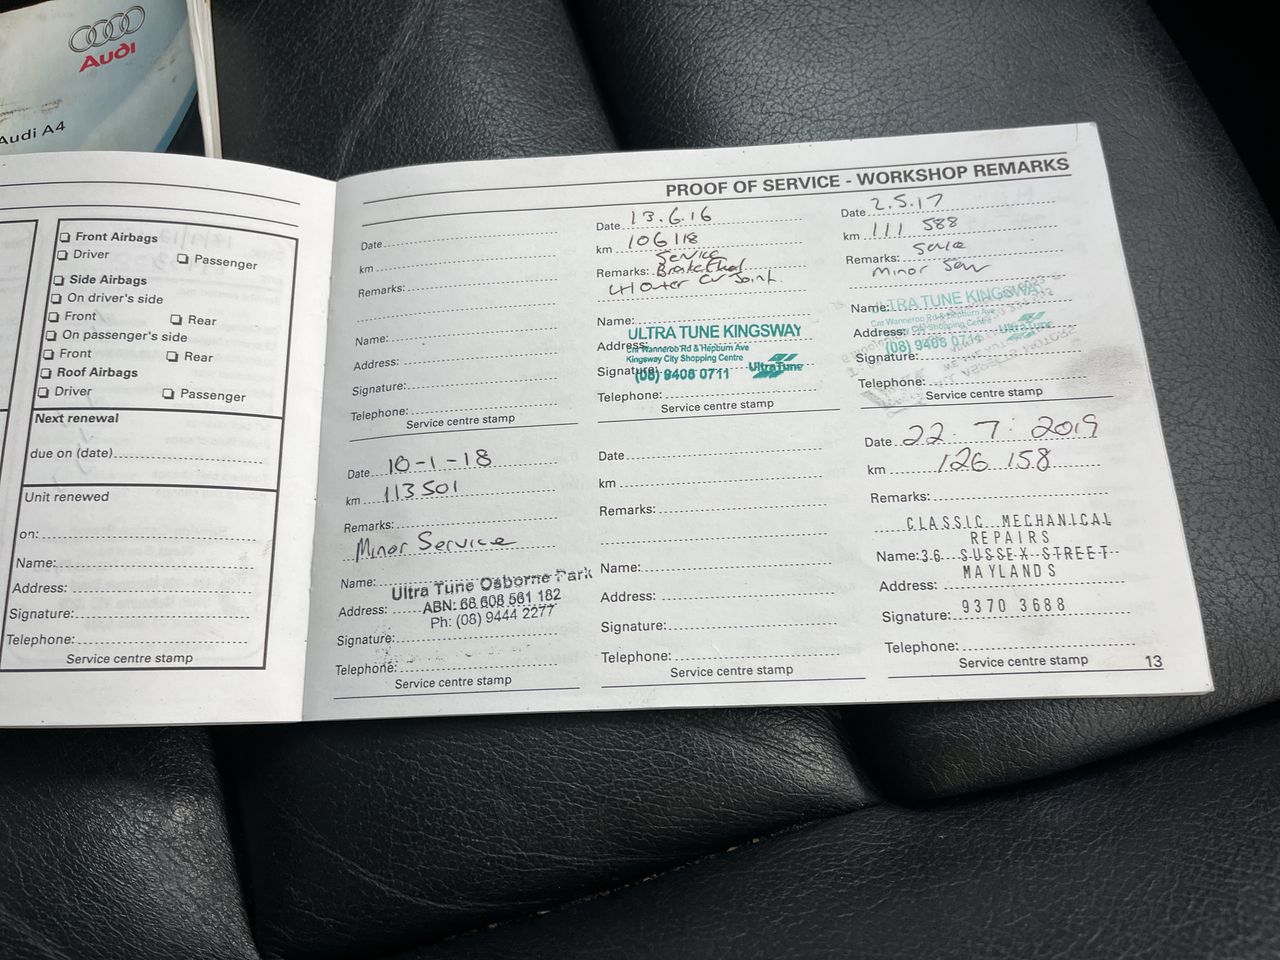 Audi
Audi A4
Front Airbags
Driver
Passenger
Side Airbags
On driver's side
Front
Rear
On passenger's side
Front
Rear
Roof Airbags
Driver
Passenger
Next renewal
due on (date)
Unit renewed
on:
Name:
Address:
Signature:
Telephone:
Service centre stamp
PROOF OF SERVICE - WORKSHOP REMARKS
Date
km
Remarks:
Name:
Address:
Signature:
Telephone:
Service centre stamp
Date 13.6.16
km 106118
Service
Remarks:
LH Outer CV Joint.
Name:
ULTRA TUNE KINGSWAY
Address:
Cnr Wanneroo Rd & Hepburn Ave
Kingsway City Shopping Centre
Signature:
(08) 9408 0711 UltraTune
Telephone:
Service centre stamp
Date 2.5.17
km 111 588
Remarks:
Minor
Name:
ULTRA TUNE KINGSWAY
Cnr Wanneroo Rd & Hepburn Ave
Address:
Kingsway City Shopping Centre
(08) 9408 0711 UltraTune
Signature:
Telephone:
Service centre stamp
Date 10-1-18
km 113501
Remarks:
Minor Service
Name:
Ultra Tune Osborne Park
Address:
ABN: 66 608 561 182
Ph: (08) 9444 2277
Signature:
Telephone:
Service centre stamp
Date
km
Remarks:
Name:
Address:
Signature:
Telephone:
Service centre stamp
Date 22. 7. 2019
km 126 158
Remarks:
CLASSIC MECHANICAL
REPAIRS
Name: 36 SUSSEX STREET
MAYLANDS
Address:
Signature: 9370 3688
Telephone:
Service centre stamp
13